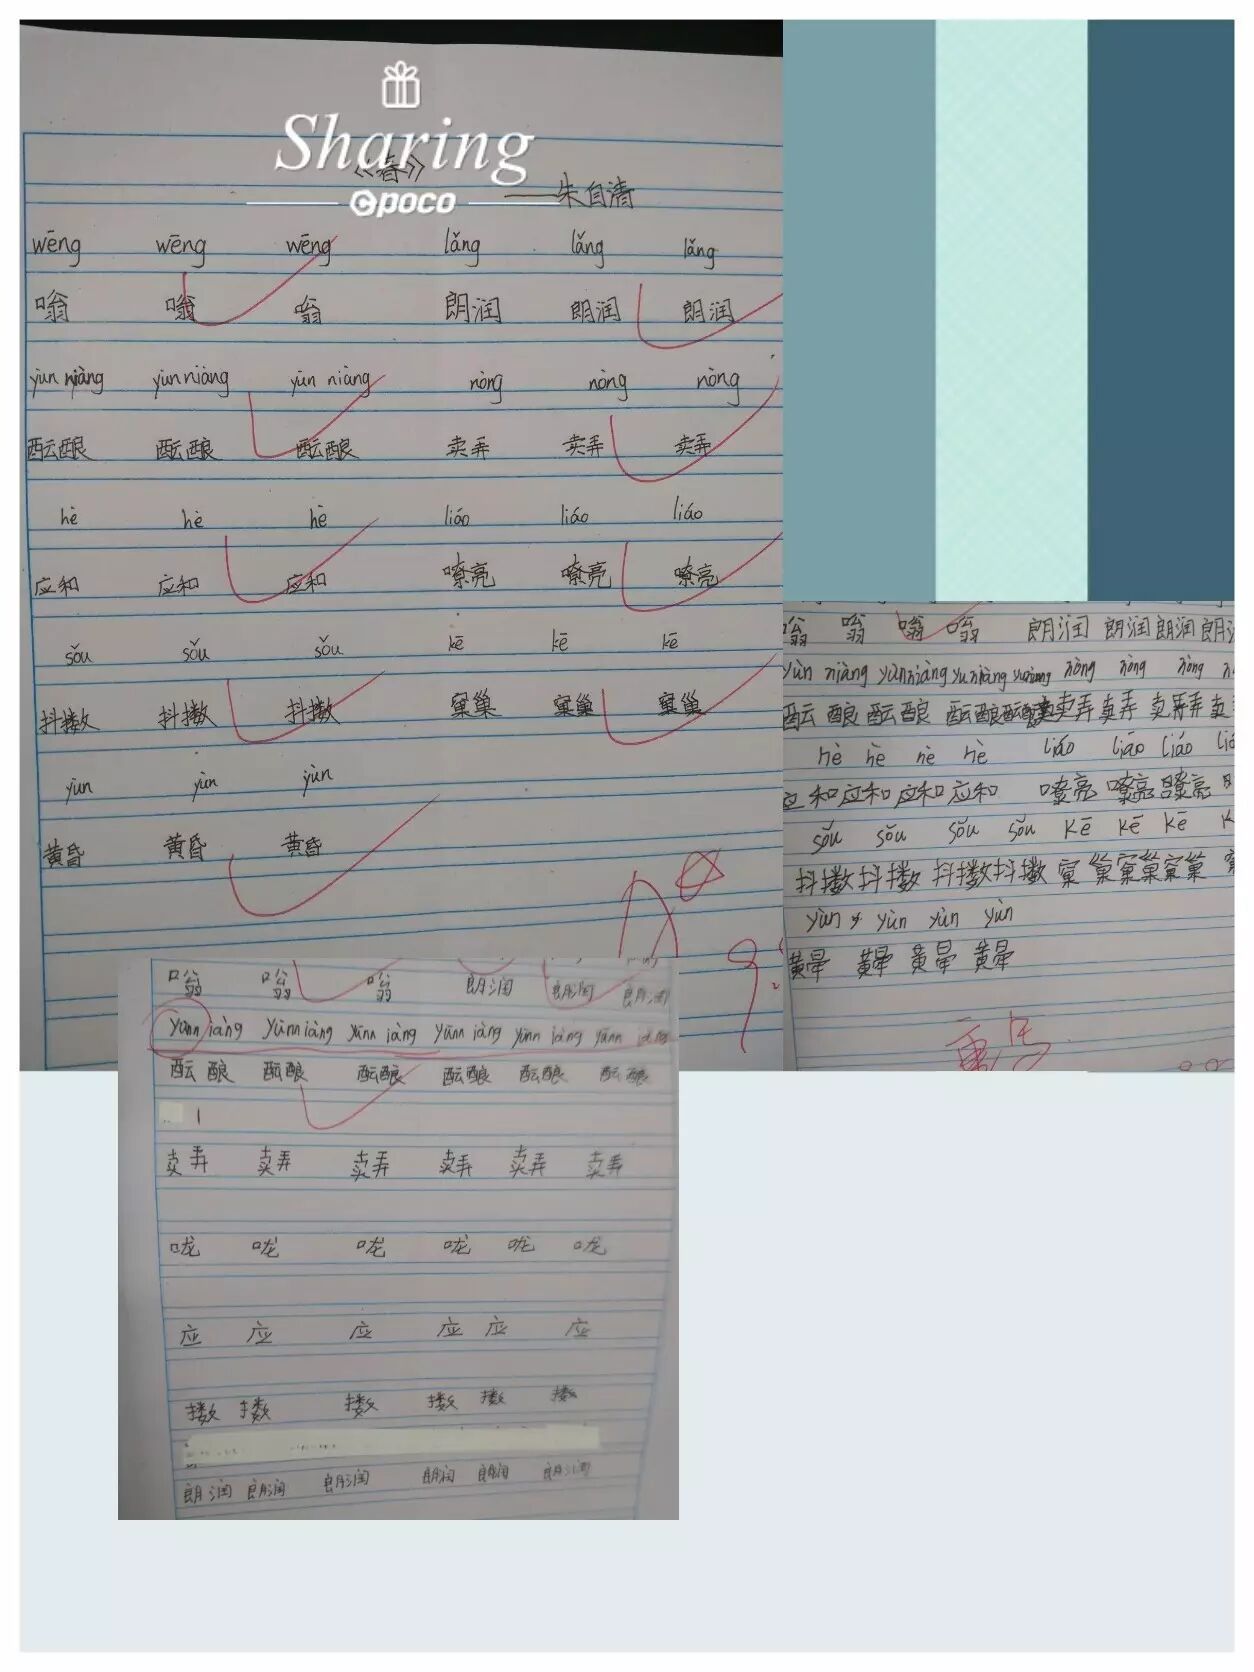 Sharing
《春》
poco
——朱自清
wēng wēng wēng lǎng lǎng lǎng
嗡 嗡 嗡 朗润 朗润 朗润
yùn niàng yùn niàng yùn niàng nòng nòng nòng
酝酿 酝酿 酝酿 卖弄 卖弄 卖弄
hè hè hè liáo liáo liáo
应和 应和 应和 嘹亮 嘹亮 嘹亮
sǒu sǒu sǒu kē kē kē
抖擞 抖擞 抖擞 窠巢 窠巢 窠巢
yùn yùn yùn
黄昏 黄昏 黄昏
嗡 嗡 嗡 嗡 朗润 朗润 朗润 朗润
yùn niàng yùnniàng yùnniàng nòng nòng nòng
酝酿 酝酿 酝酿 卖弄 卖弄 卖弄 卖
hè hè hè hè liáo liáo liáo
应和 应和 应和 应和 嘹亮 嘹亮 嘹亮
sǒu sǒu sǒu sǒu kē kē kē
抖擞 抖擞 抖擞 抖擞 窠巢 窠巢 窠巢
yùn yùn yùn yùn
黄晕 黄晕 黄晕 黄晕
嗡 嗡 嗡 朗润 朗润 朗润
yùnn iàng yùnn iàng yùnn iàng yùnn iàng yùnn iàng yùnn
酝酿 酝酿 酝酿 酝酿 酝酿 酝酿
卖弄 卖弄 卖弄 卖弄 卖弄 卖弄
咙 咙 咙 咙 咙 咙
应 应 应 应 应 应
擞 擞 擞 擞 擞 擞
朗润 朗润 朗润 朗润 朗润 朗润